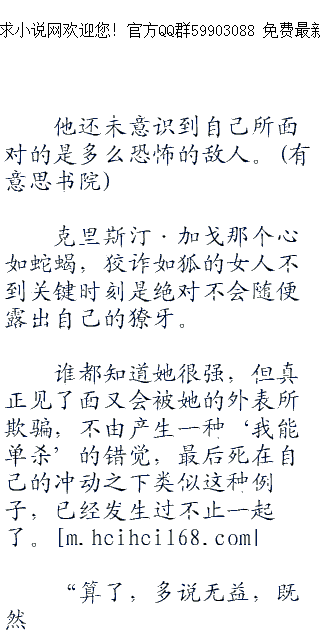 求小说网欢迎您! 官方QQ群59903088 免费最新
他还未意识到自己所面
对的是多么恐怖的敌人。(有
意思书院)
克里斯汀·加戈那个心
如蛇蝎，狡诈如狐的女人不
到关键时刻是绝对不会随便
露出自己的獠牙。
谁都知道她很强，但真
正见了面又会被她的外表所
欺骗，不由产生一种‘我能
单杀’的错觉，最后死在自
己的冲动之下类似这种例
子，已经发生过不止一起
了。[m.hcihci168.com|
“算了，多说无益，既
然